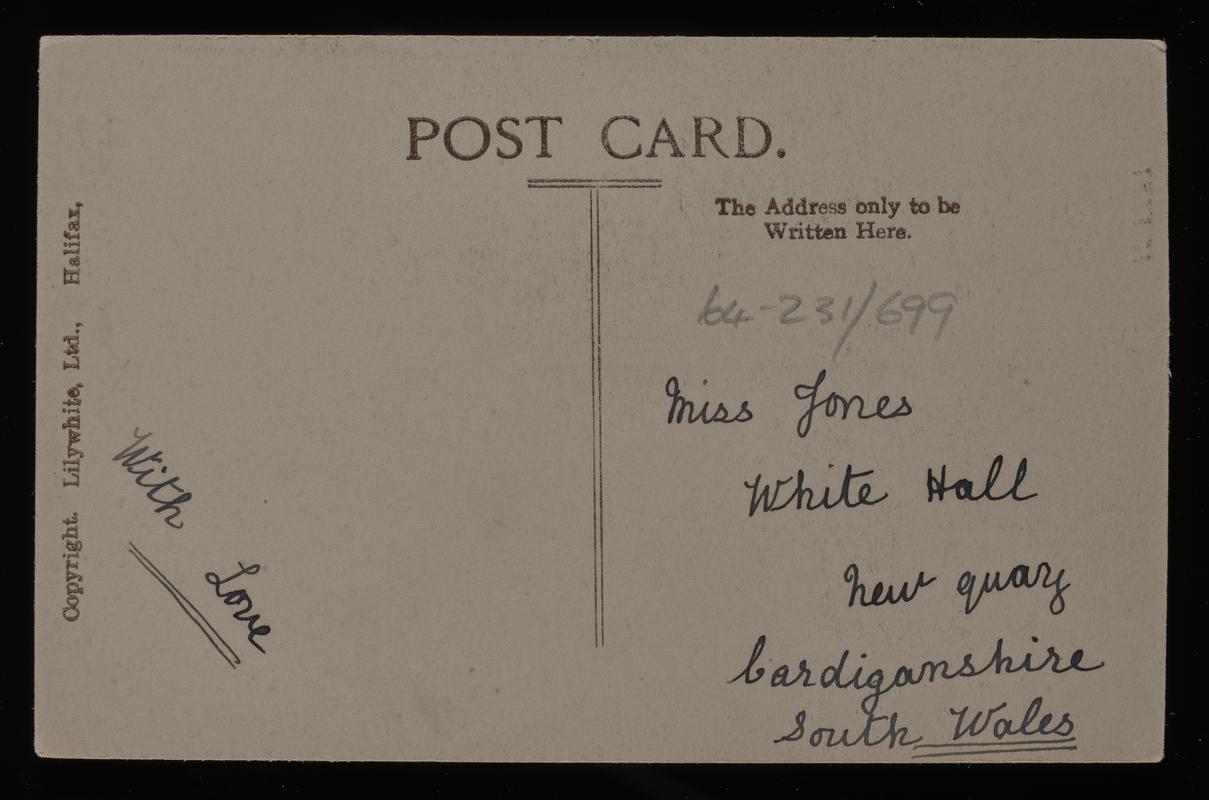 POST CARD.
The Address only to be
Written Here.
64-231/699
Miss Jones
White Hall
New quay
Cardiganshire
South Wales
With
Love
Copyright. Lilywhite, Ltd., Halifax,